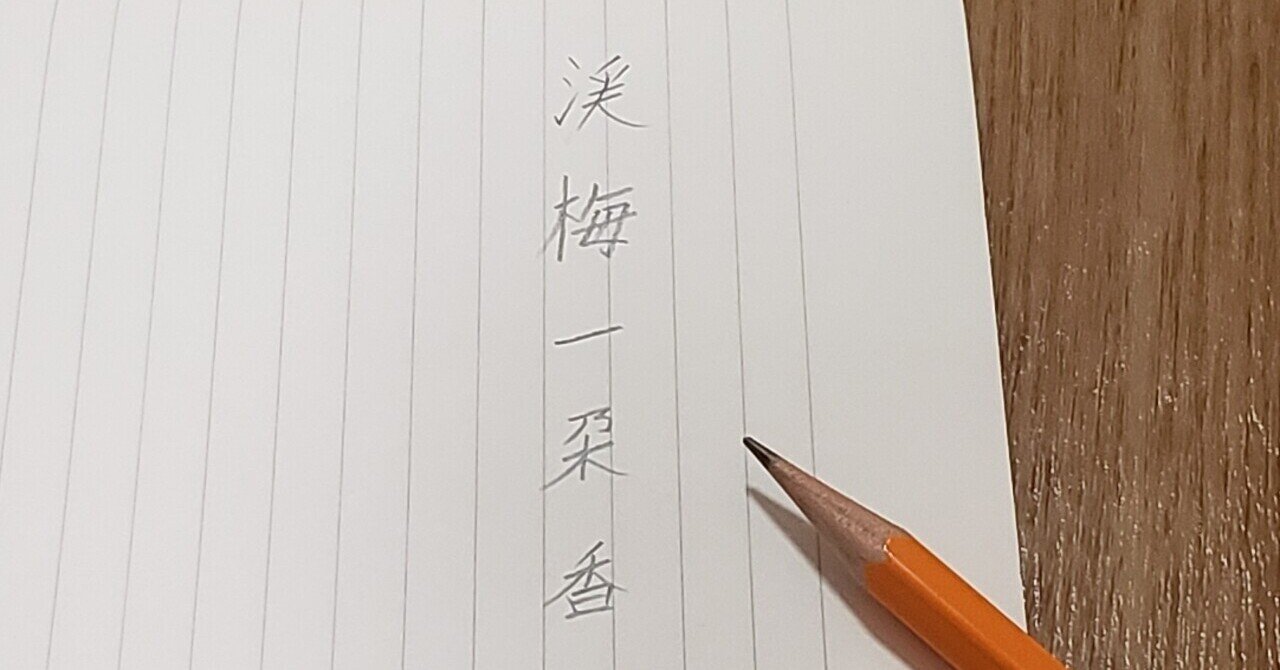 渓梅一朶香